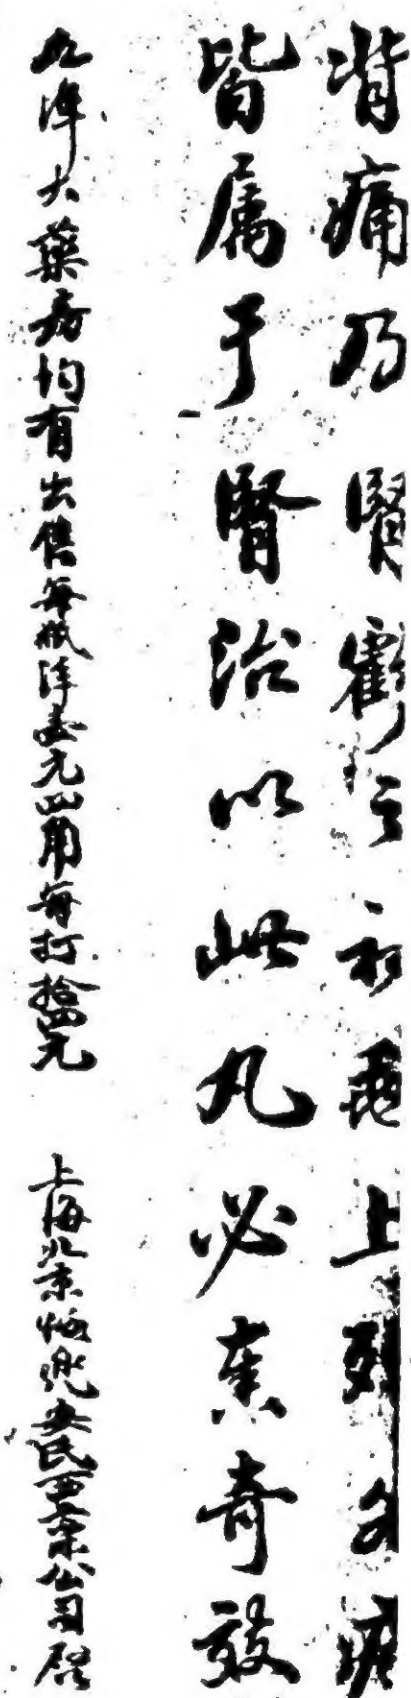 背痛乃腎虧之初兆上列各症
皆属于腎治以此丸必奏奇效
大藥房均有出售每瓶洋壹元四角每打拾四元 上海北京悅兜安氏西藥公司啓